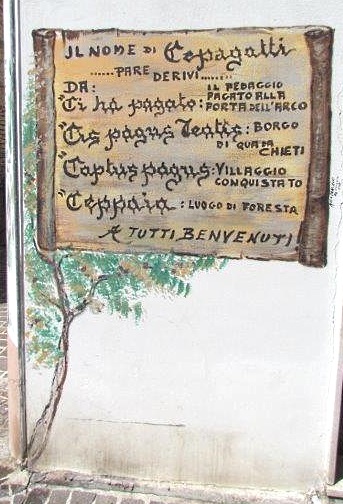 IL NOME DI Cepagatti
......PARE DERIVI.......
DA:
"Ci ha pagato: IL PEDAGGIO
PAGATO ALLA
PORTA DELL'ARCO
"Cis pagus Teatis: BORGO
DI QUA DA
CHIETI
"Captus pagus: VILLAGGIO
CONQUISTATO
"Ceppaia: LUOGO DI FORESTA
A TUTTI BENVENUTI!